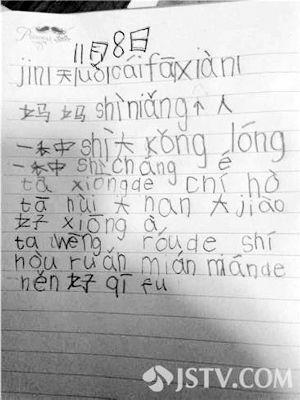 11月8日
jīnl天wǒcáifāxiànl
妈妈shìniǎng个人
一本中shì大kǒnglóng
一本中shìcháng é
tā xiōngde chí hò
tā hùi 大 han 大jiào
好 xiōng à
ta weng róude shí
hòu ruǎn mián miánde
hěn 好 qī fu
JSTV.COM